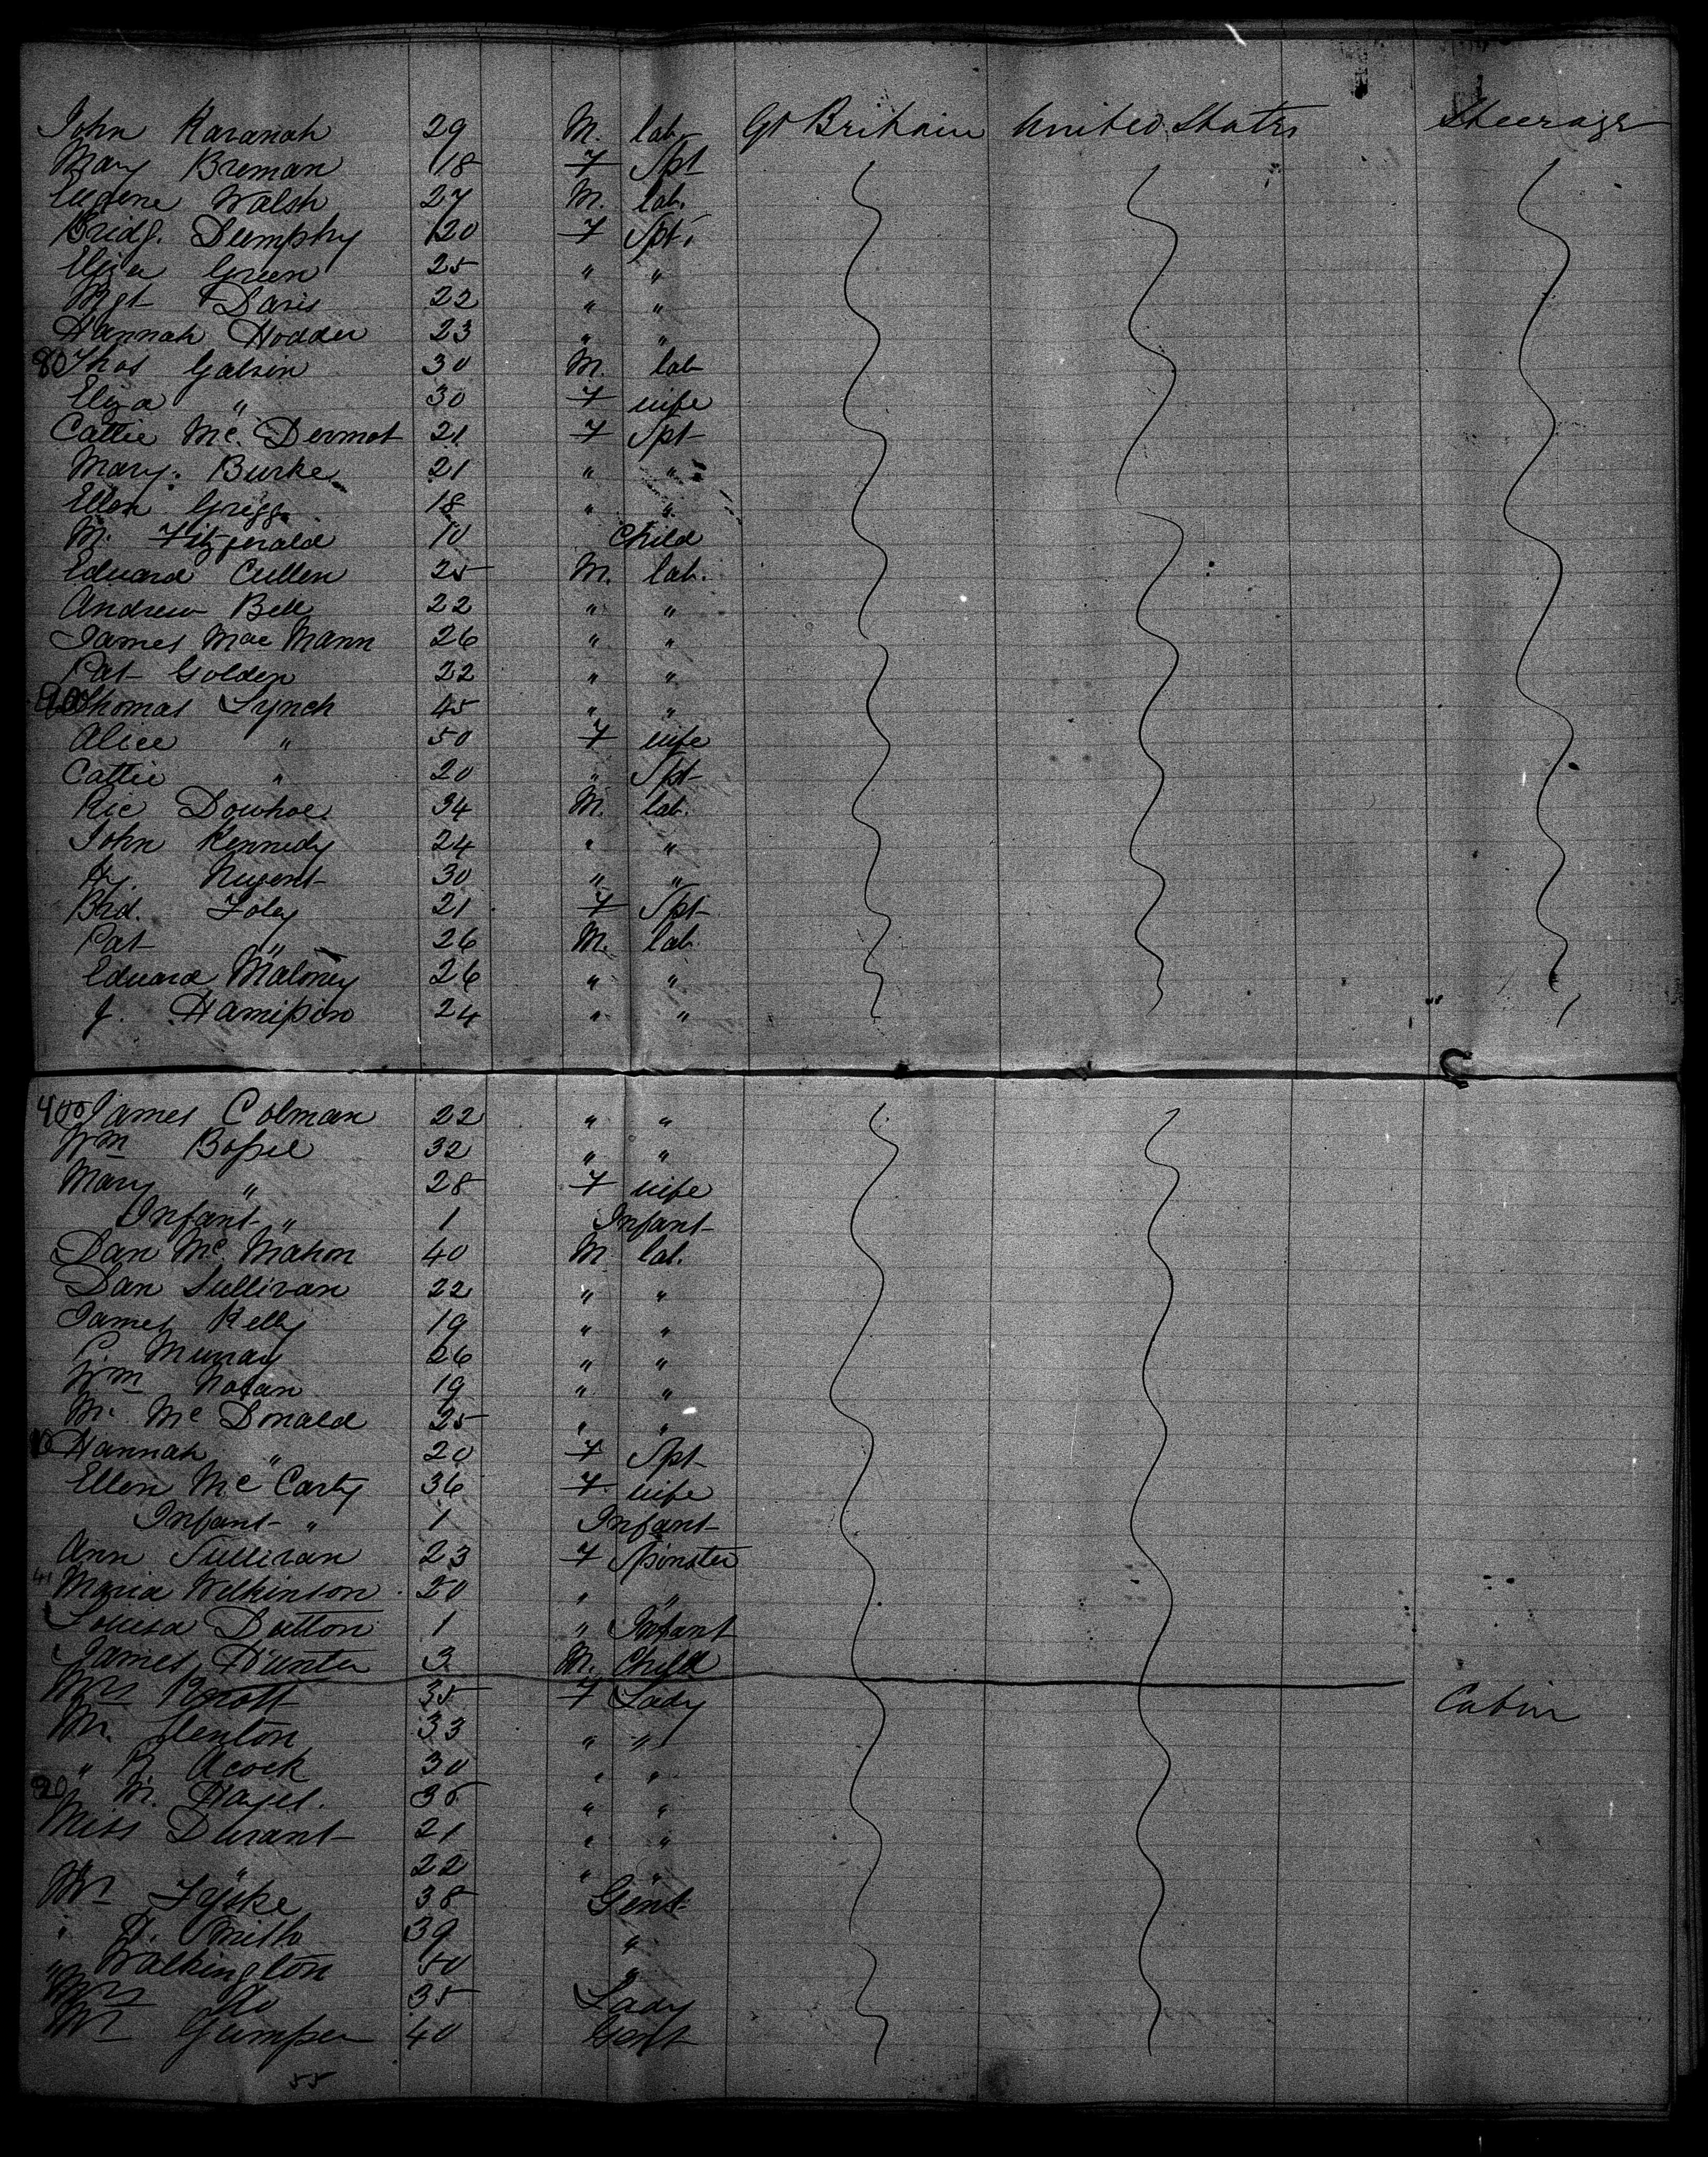 John Kavanah 29 M. lab. Gt Britain United States Steerage
Mary Breman 18 F Spt
Eugene Walsh 27 M. lab.
Bridg. Dumphy 20 F Spt.
Eliza Green 25 " "
Mgt Davis 22 " "
Hannah Hodder 23 " "
80 Thos Galvin 30 M. lab
Eliza " 30 F wife
Cattie Mc. Dermot 21 F Spt
Mary Burke 21 " "
Ellen Grigg 18 " "
M. Fitzgerald 10 Child
Eduard Cullen 25 M. lab.
Andrew Bell 22 " "
James Mac Mann 26 " "
Pat Golden 22 " "
90 Thomas Lynch 45 " "
Alice " 50 F wife
Cattie " 20 " Spt
Ric Donhoe 34 M. lab.
John Kennedy 24 " "
Hy. Nugent 30 " "
Brd. Foley 21 F Spt
Pat " 26 M. lab.
Eduard Maloney 26 " "
J. 24 " "
400 James Colman 22 " "
Wm 32 " "
Mary " 28 F wife
Infant " 1 Infant
Dan Mc Mahon 40 M lab.
Dan Sullivan 22 " "
James Kelly 19 " "
P. Murray 26 " "
Wm Nolan 19 " "
M. Mc Donald 25 " "
10 Hannah " 20 F Spt
Ellen Mc Carty 36 F wife
Infant " 1 Infant
Ann Sullivan 23 F Spinster
Maria Wilkinson 20 " "
Louisa Dutton 1 " Infant
James Hunter 3 M. Child
Mrs 35 F Lady Cabin
M. 33 " "
" Acock 30 " "
20 " M. Hayes. 36 " "
Miss Durant 21 " "
" 22 " "
Mr 38 Gent
" H. Smith 39 "
" Walkington 50 "
Mrs do 35 Lady
Mr 40 Gent
55